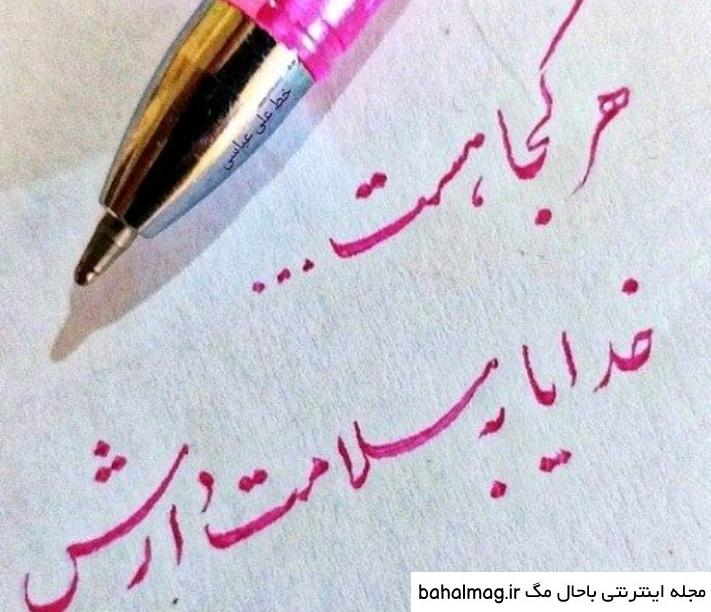 خط علی عباسی
هر کجا هست...
خدایا به سلامت دارش
مجله اینترنتی باحال مگ bahalmag.ir